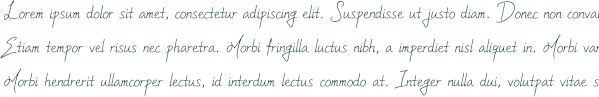 Lorem ipsum dolor sit amet, consectetur adipiscing elit. Suspendisse ut justo diam. Donec non conval
Etiam tempor vel risus nec pharetra. Morbi fringilla luctus nibh, a imperdiet nisl aliquet in. Morbi var
Morbi hendrerit ullamcorper lectus, id interdum lectus commodo at. Integer nulla dui, volutpat vitae s